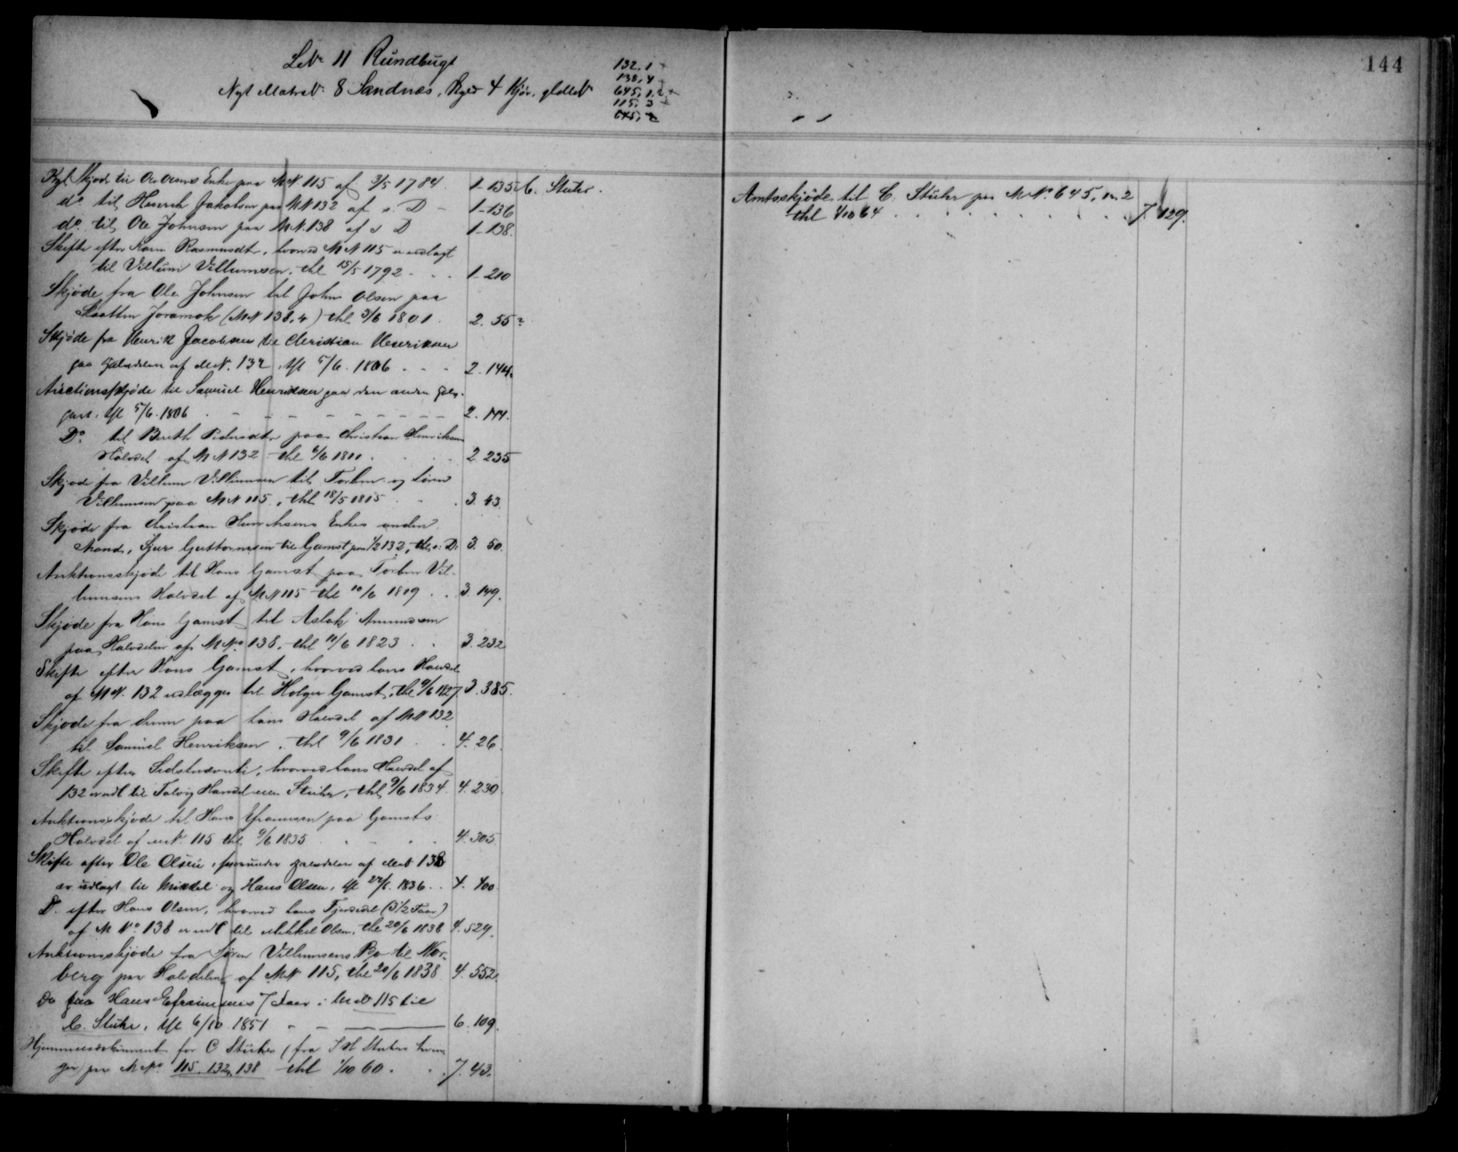 LNr 11 Rundbugt
Nyt MatrNr 8 Sandnæs, Byes 4 Kjør. glMtNr
132.1
138.4
645.1.2
115.3
645.2
144
Kgl Skjøde til Ole Olsens Enke paa MN 115 af 3/5 1784. 1-135
C. Stuhr.
do til Henrich Jakobsen paa MN 132 af s. D - 1-136
do til Ole Johnsen paa MN 138 af s D 1-138.
Skifte efter Karen Rasmusdtr, hvorved MN 115 er udlagt
til Villum Villumsen, thl 15/5 1792 - . . 1-210
Skjøde fra Ole Johnsen til John Olsen paa
(MN 138.4) thl 3/6 1801. 2.55
Skjøde fra Henrik Jacobsen til Christian Henriksen
paa Halvdelen af MN. 132, thl 5/6. 1806 . - - 2.144.
Auctionsskjøde til Samuel Henriksen paa den anden Halv-
part, thl 5/6. 1806 2.144.
Do til Bereth Pedersdtr paa Christian Henriksens
Halvdel af MN 132 - thl 6/6 1811 2 235
Skjøde fra Villum Villumsen til Torben og Søren
Villumsen paa MN 115, thl 18/5 1815 3.43
Skjøde fra Christian Henriksens Enkes anden
Mand, Sjur Guttormsen til Gamst paa 1/2 132, thl s. D. 3.50.
Auktionsskjød til Hans Gamst paa Torben Vil-
lumsens Halvdel af MN 115 - thl 10/6 1819 . . 3.149.
Skjøde fra Hans Gamst til Aslak Amundsen
paa Halvdelen af MNo. 138. - thl 11/6 1823 . . 3.232
Skifte efter Hans Gamst, hvorved hans Halvdel
af MN. 132 udlægges til Holger Gamst, thl 9/6 1827. 3.385.
Skjøde fra denne paa hans Halvdel af MN 132
til Samuel Henriksen, thl 9/6 1831 . . 4.26.
Skifte efter Sidstnævnte, hvorved hans Halvdel af
132 er udl til Talvig Handel eller Stuhr, thl 9/6 1834. 4.230.
Auktionsskjøde til Hans Efraimsen paa Gamsts
Halvdel af MN 115 thl 9/6 1835 4.305
Skifte efter Ole Olsen, hvorunder Halvdelen af MN 138
er udlagt til Mikkel og Hans Olsen, thl 1836 . . 4.400
Do efter Hans Olsen, hvorved hans Fjerdedel (3 1/2 Faar)
af M No 138 er udl til Mikkel Olsen, thl 20/6 1838 4.529.
Auktionsskjøde fra Søren Villumsens Bo til Nor-
berg paa Halvdelen af MN 115, thl 20/6 1838 4.552.
Do paa Hans Efraimsens 7 Faar i MN 115 til
C. Stuhr, thl 6/10 1851 6.109.
Hjemmelsdokument for C Stuhr (fra J H Stuhrs Arvin-
ger paa MNo. 115.132.138 thl 1/10 60 . . 7.43.
Amtsskjøde til C. Stuhr paa MNo. 645, No. 2
thl 4/10 64 . . . . . . . . . 7.129.